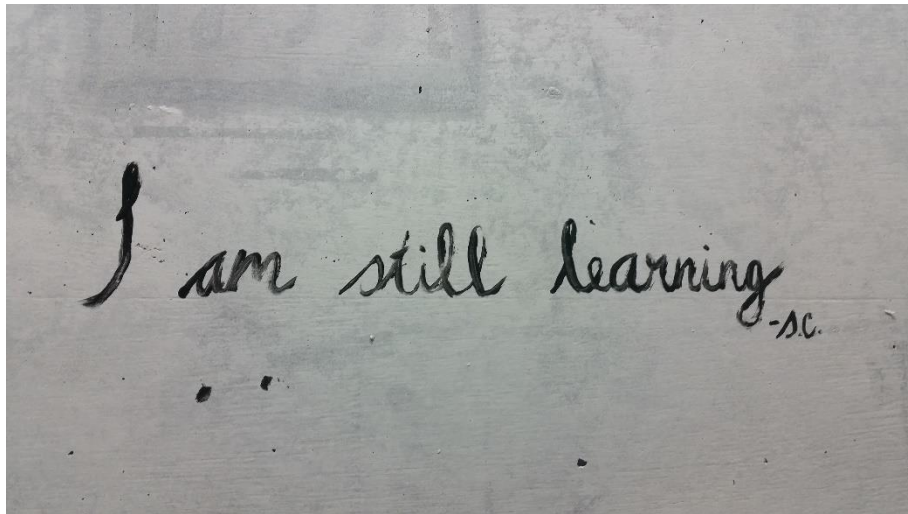 I am still learning
-s.c.